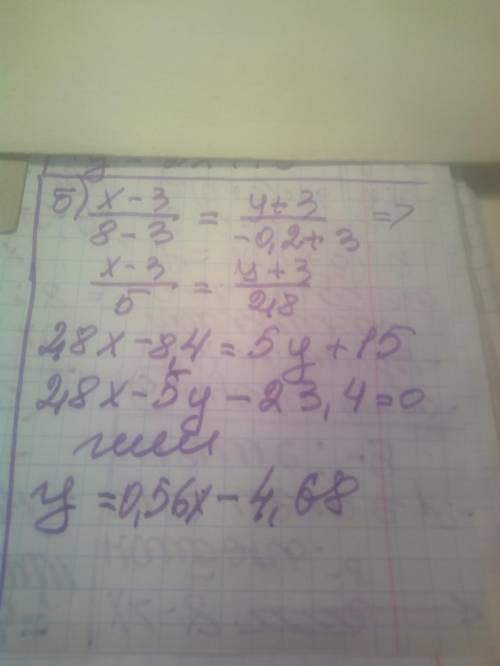 б) x - 3 / 8 - 3 = y + 3 / -0,2 + 3 =>
x - 3 / 5 = y + 3 / 2,8
2,8x - 8,4 = 5y + 15
2,8x - 5y - 23,4 = 0
или
y = 0,56x - 4,68